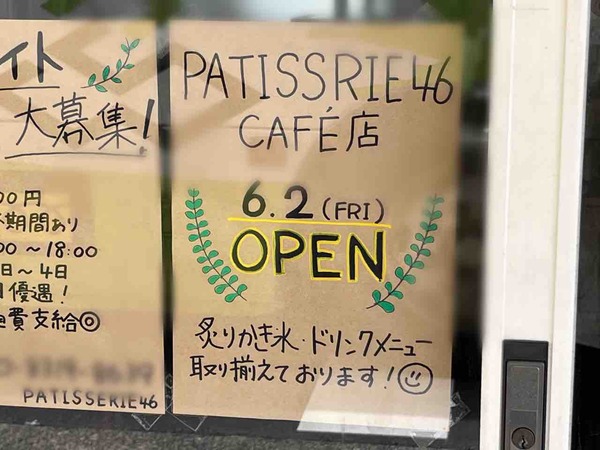 イト
大募集!
00円
期間あり
00～18:00
日～4日
優遇!
費支給◎
PATISSERIE46
PATISSRIE46
CAFÉ店
6.2(FRI)
OPEN
炙りかき氷・ドリンクメニュー
取り揃えております!☺